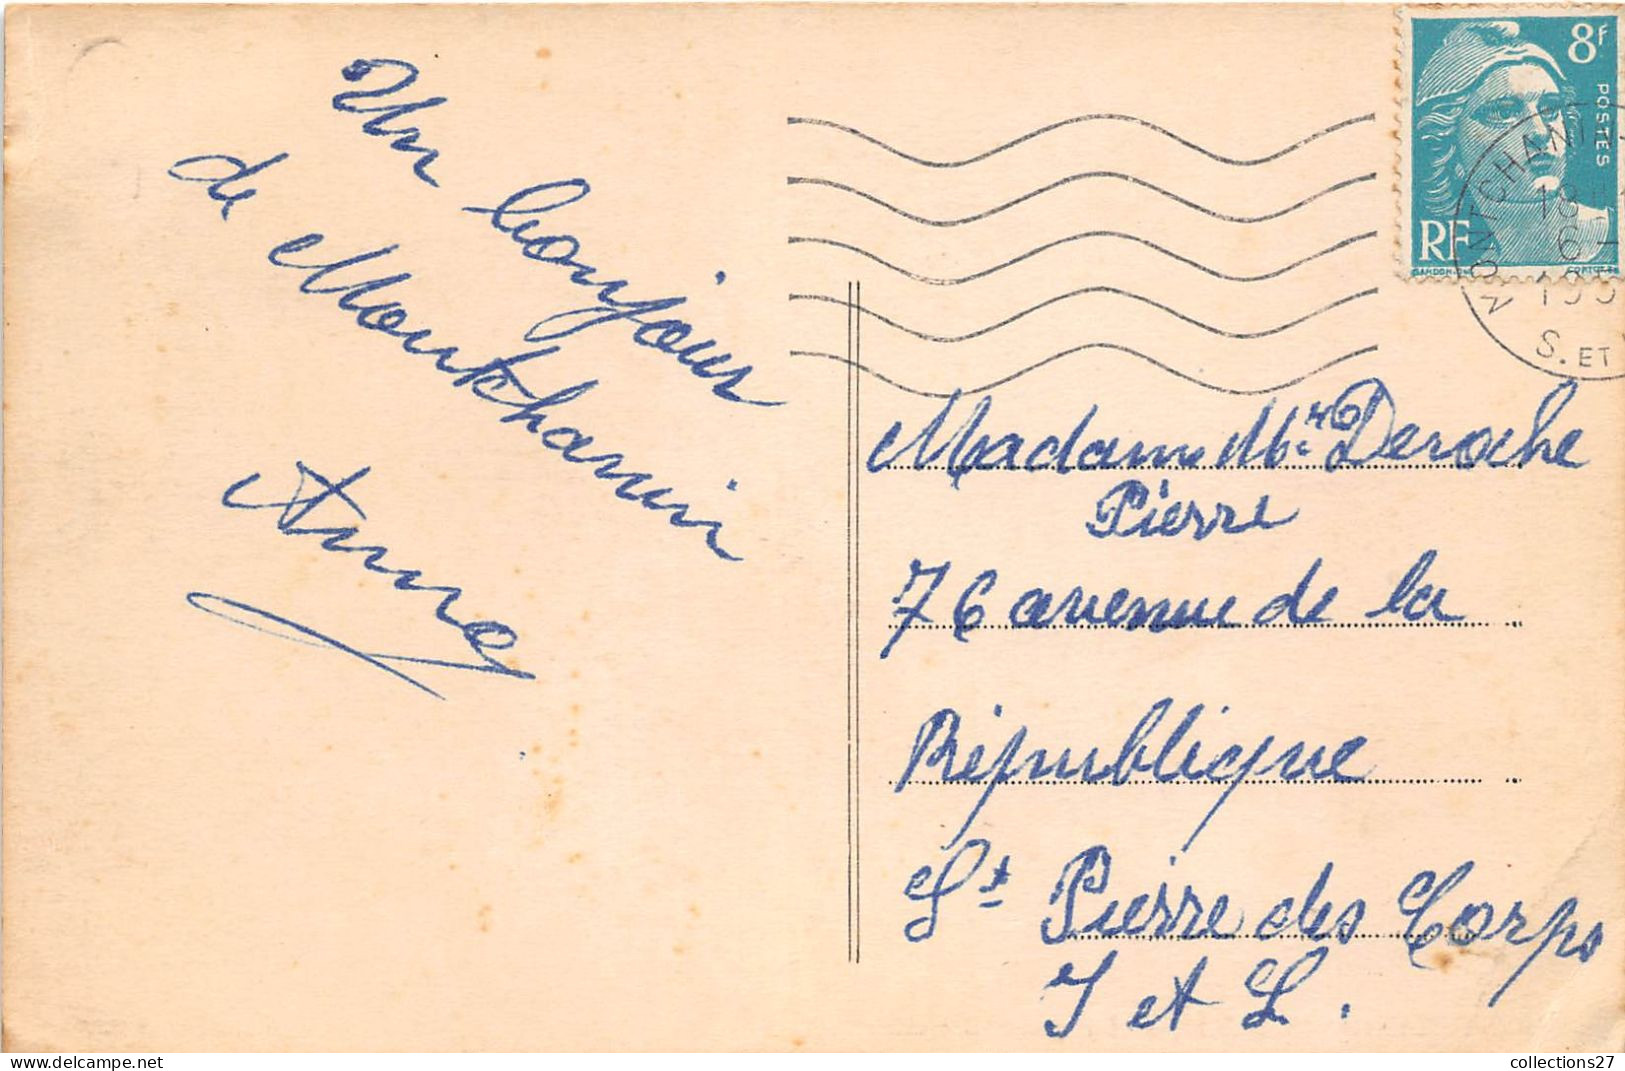 Un bonjour
de Montchanin
Anna
8F
POSTES
RF
GANDON
CORTOT
MONTCHANIN
18
6
195
S. ET
Madame Mr Deroche
Pierre
76 avenue de la
République
St Pierre des Corps
I et L.
collections27